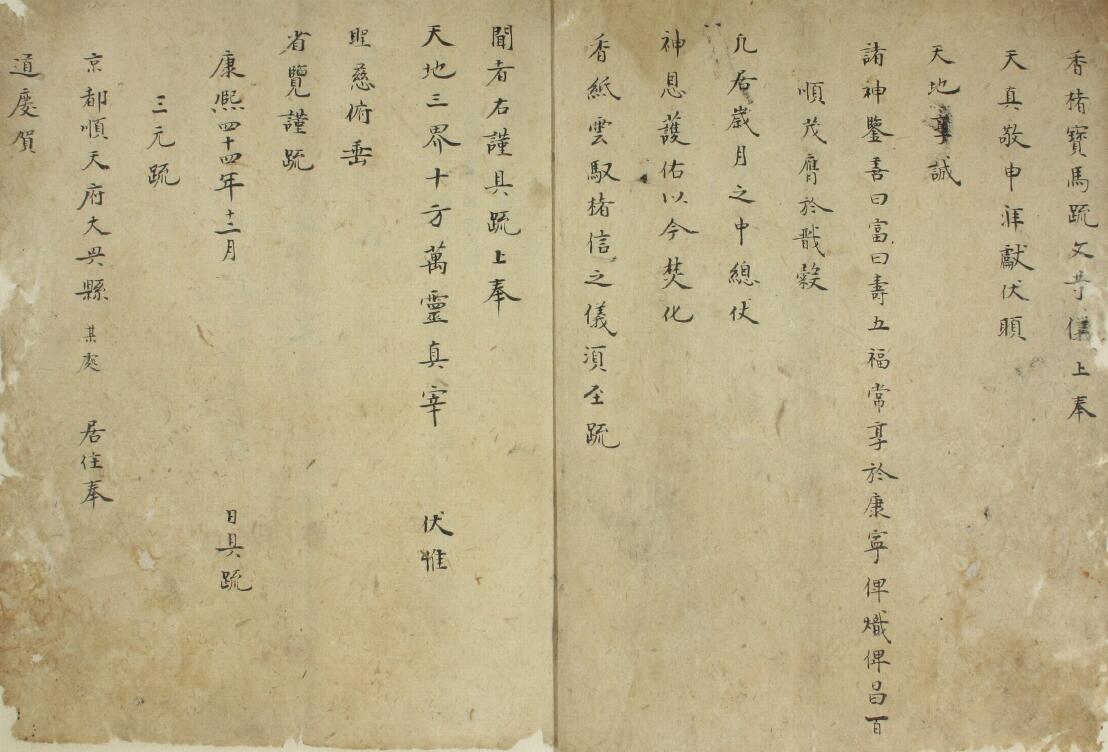 香楮寶馬疏文等儀上奉
天真敬申泮獻伏願
天地享誠
諸神鑒善曰富曰壽五福常享於康寧俾熾俾昌百
順茂膺於戩穀
凡居歲月之中總伏
神恩護佑以今焚化
香紙雲馭楮信之儀須至疏
聞者右謹具疏上奉
天地三界十方萬靈真宰 伏惟
聖慈俯垂
省覽謹疏
康熙四十四年十二月 日具疏
三元疏
京都順天府大興縣 某處 居住奉
道慶賀